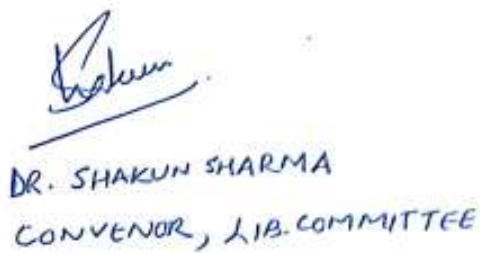 Shakun
DR. SHAKUN SHARMA
CONVENOR, LIB. COMMITTEE